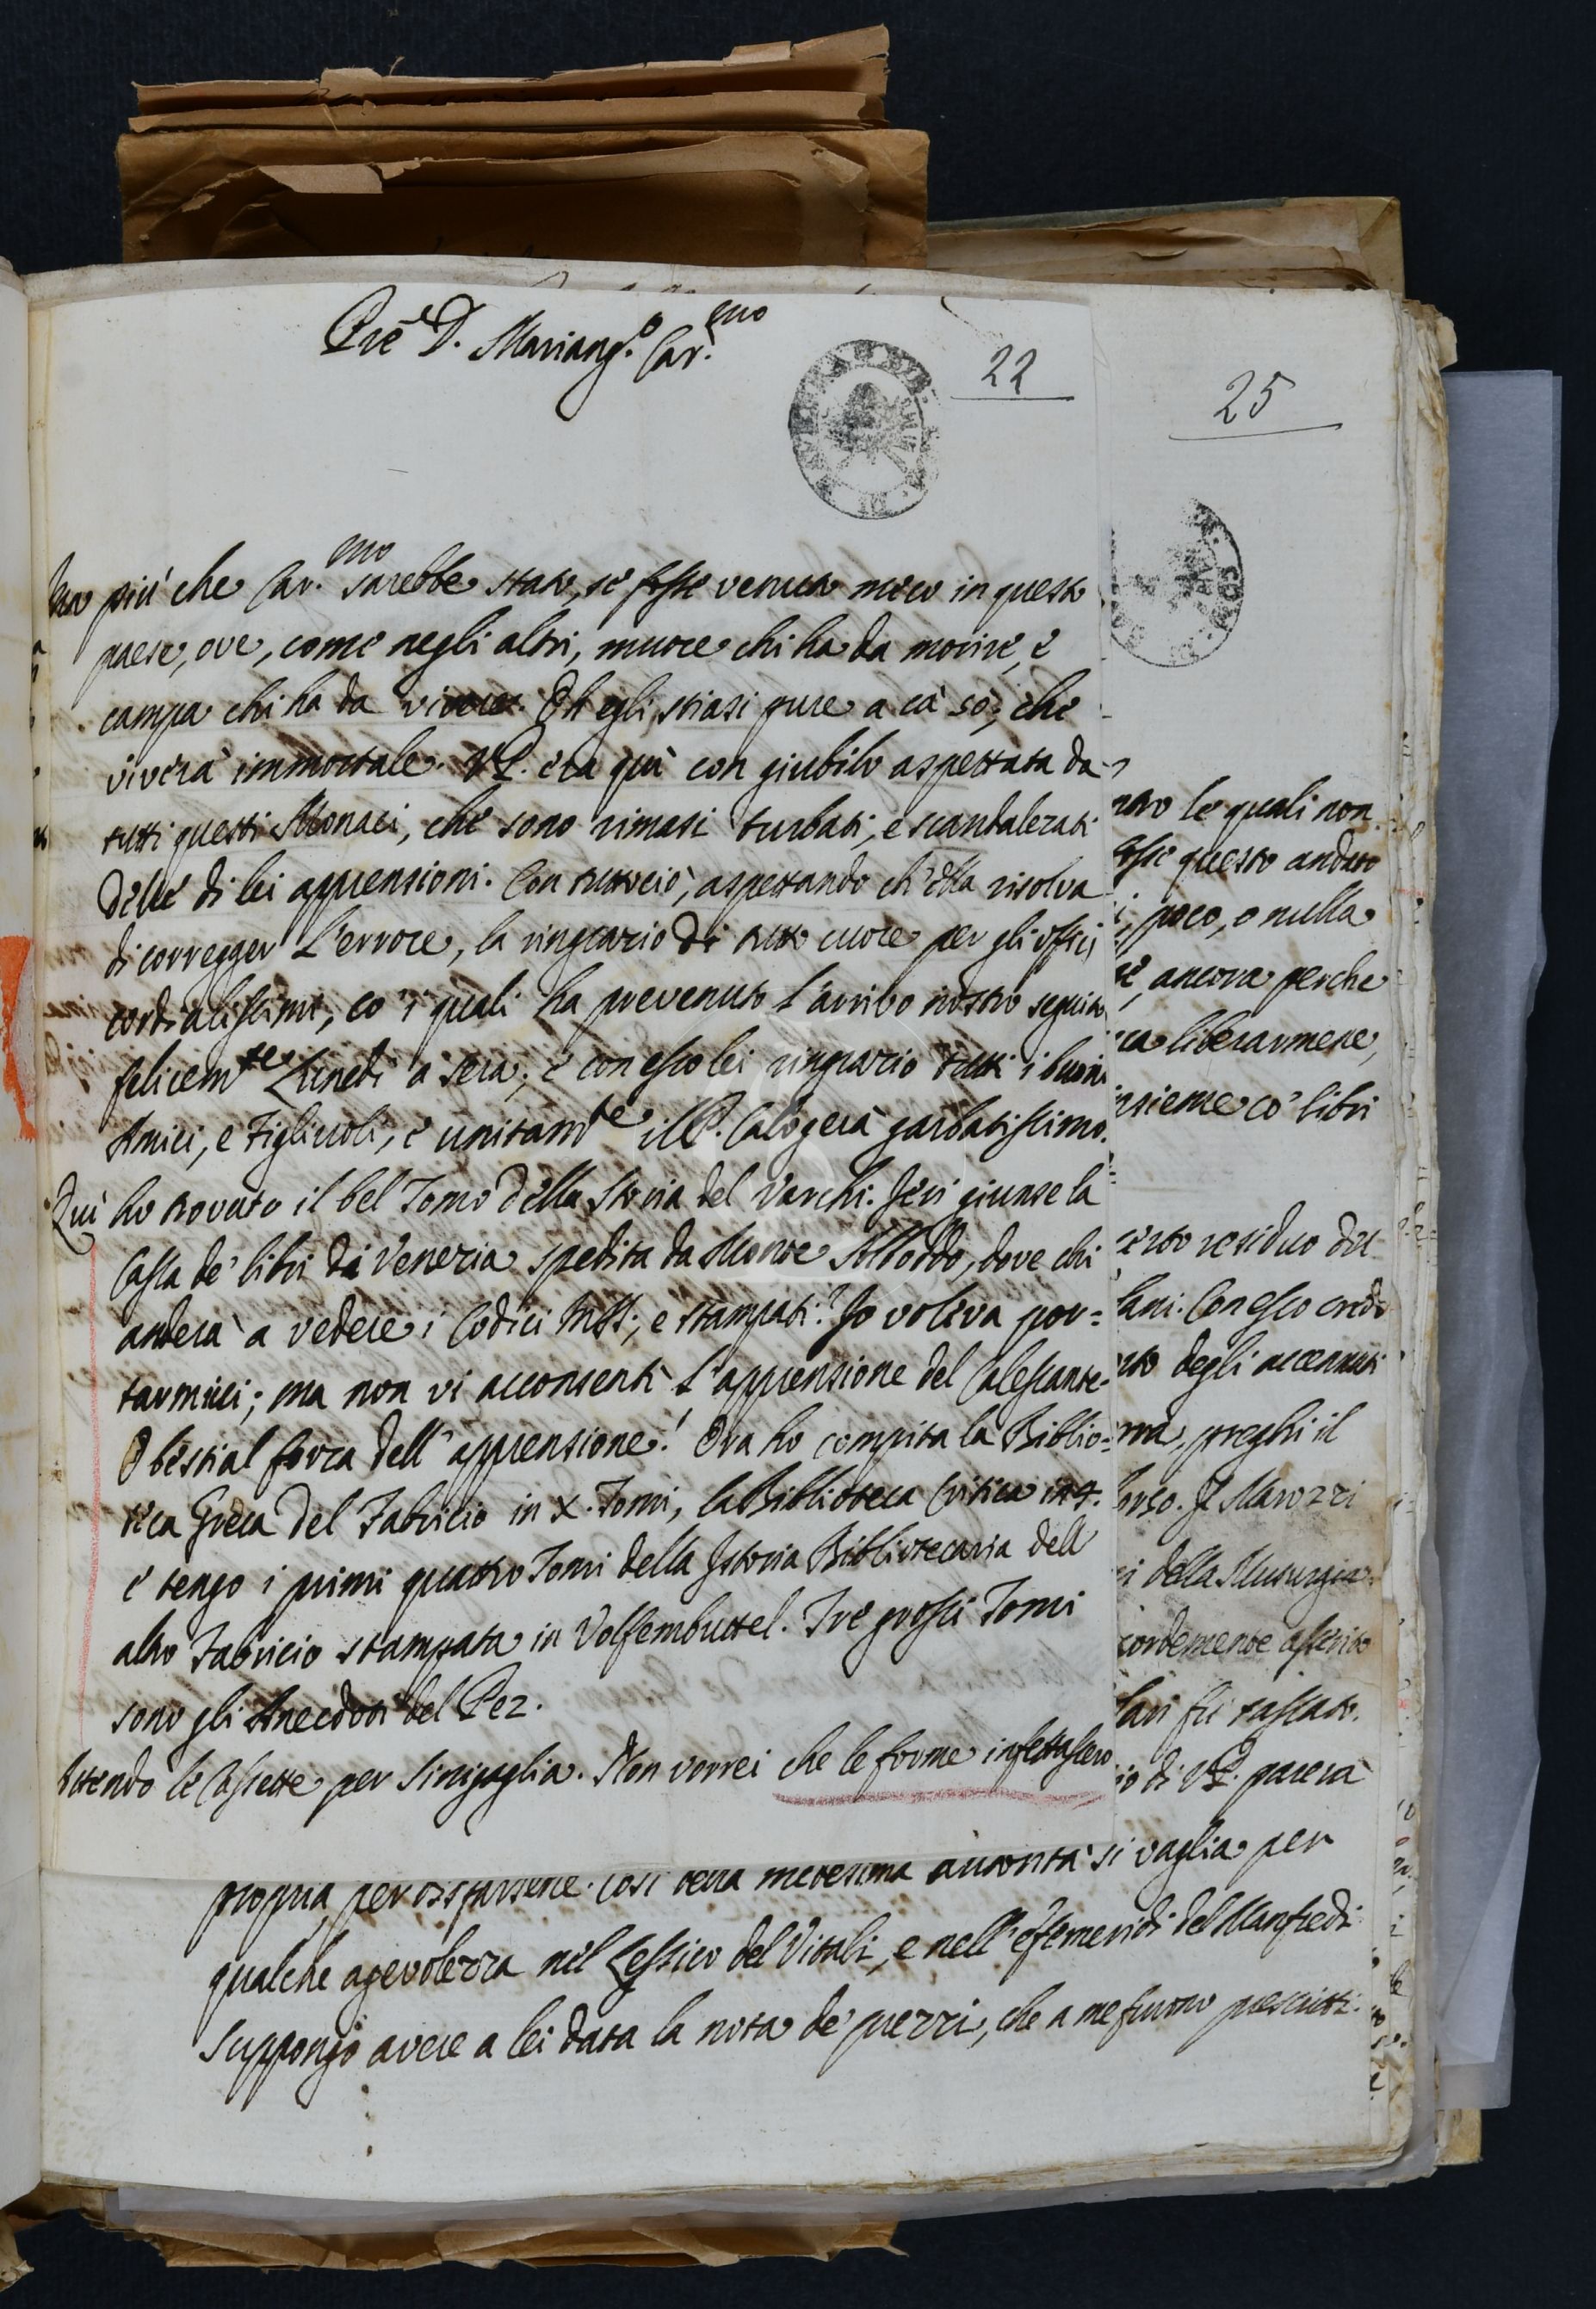 Pre D. Mariang.o Car.mo
22
ma più che Car.mo sarebbe stato, se fosse venuta meco in questo
paese, ove, come negli altri, muore chi ha da morire, e
campa chi ha da vivere. Oh egli stiasi pure a cà so, che
viverà immortale. VP. era quì con giubilo aspettata da
tutti questi Monaci, che sono rimasi turbati, e scandalezati
delle di lei apprensioni. Con tuttociò, aspettando ch'ella risolva
di corregger l'errore, la ringrazio di tutto cuore per gli offici
cordialissimi, co' i quali ha prevenuto l'arribo nostro seguito
felicemte Lunedì a sera; e con esso lei ringrazio tutti i buoni
Amici, e Figliuoli, e unitamte il P. Calogerà garbatissimo.
Quì ho trovato il bel Tomo della Storia del Varchi. Jeri giunse la
Cassa de' libri da Venezia spedita da Monre Alloddo, dove chi
anderà a vedere i Codici MSS., e stampati? Jo voleva por=
tarmici; ma non vi acconsentì l'apprensione del Calescante.
O bestial forza dell'apprensione! Ora ho compita la Biblio=
teca Greca del Fabricio in X. Tomi, la Biblioteca Critica in 4.
e tengo i primi quattro Tomi della Jstoria Bibliotecaria dell
altro Fabricio stampata in Volfembuttel. Tre grossi Tomi
sono gli Anecdoti del Pez.
Attendo le Cassette per Sinigaglia. Non vorrei che le forme infettassero
25
le quali non
questo andato
poco, o nulla
ancora perche
liberarmene,
insieme co' libri
residuo del
Con esso credo
degli accennati
preghi il
Jl Marozzi
della Musurgia
asserito
fu tassato.
di VP. parerà
propria, per disfarsene. Così della medesima autorità si vaglia per
qualche agevolezza nel Lessico del Vitali, e nell'efemeridi del Manfredi
suppongo avere a lei data la nota de' prezzi, che a me furono prescritti.